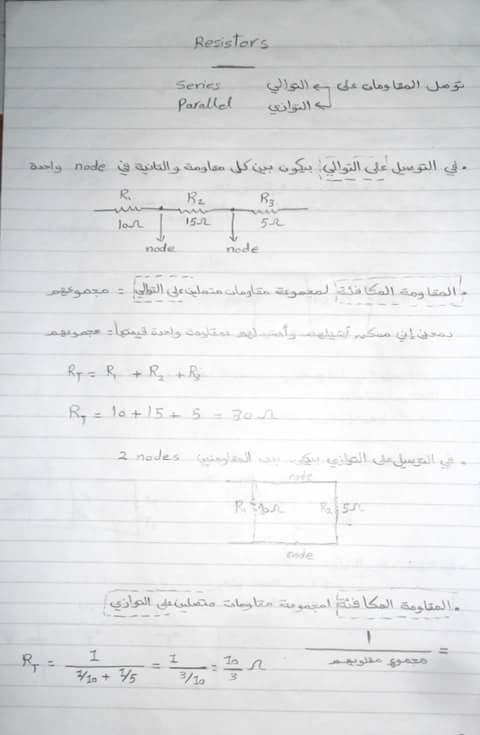 Resistors
توصل المقاومات على التوالي Series
التوازي Parallel
. في التوصيل على التوالي بيكون بين كل مقاومة والثانية في node واحدة
R₁ R₂ R₃
10Ω 15Ω 5Ω
node node
. المقاومة المكافئة لمجموعة مقاومات متصلين على التوالي = مجموعهم
بمعنى إني ممكن أشيلهم وأحط لهم مقاومة واحدة قيمتها = مجموعهم
R_T = R₁ + R₂ + R₃
R_T = 10 + 15 + 5 = 30 Ω
. في التوصيل على التوازي بيكون بين المقاومتين 2 nodes
node
R₁ 10Ω R₂ 5Ω
node
. المقاومة المكافئة لمجموعة مقاومات متصلين على التوازي
= 1 / مجموع مقلوبهم
R_T = 1 / (1/10 + 1/5) = 1 / (3/10) = 10/3 Ω